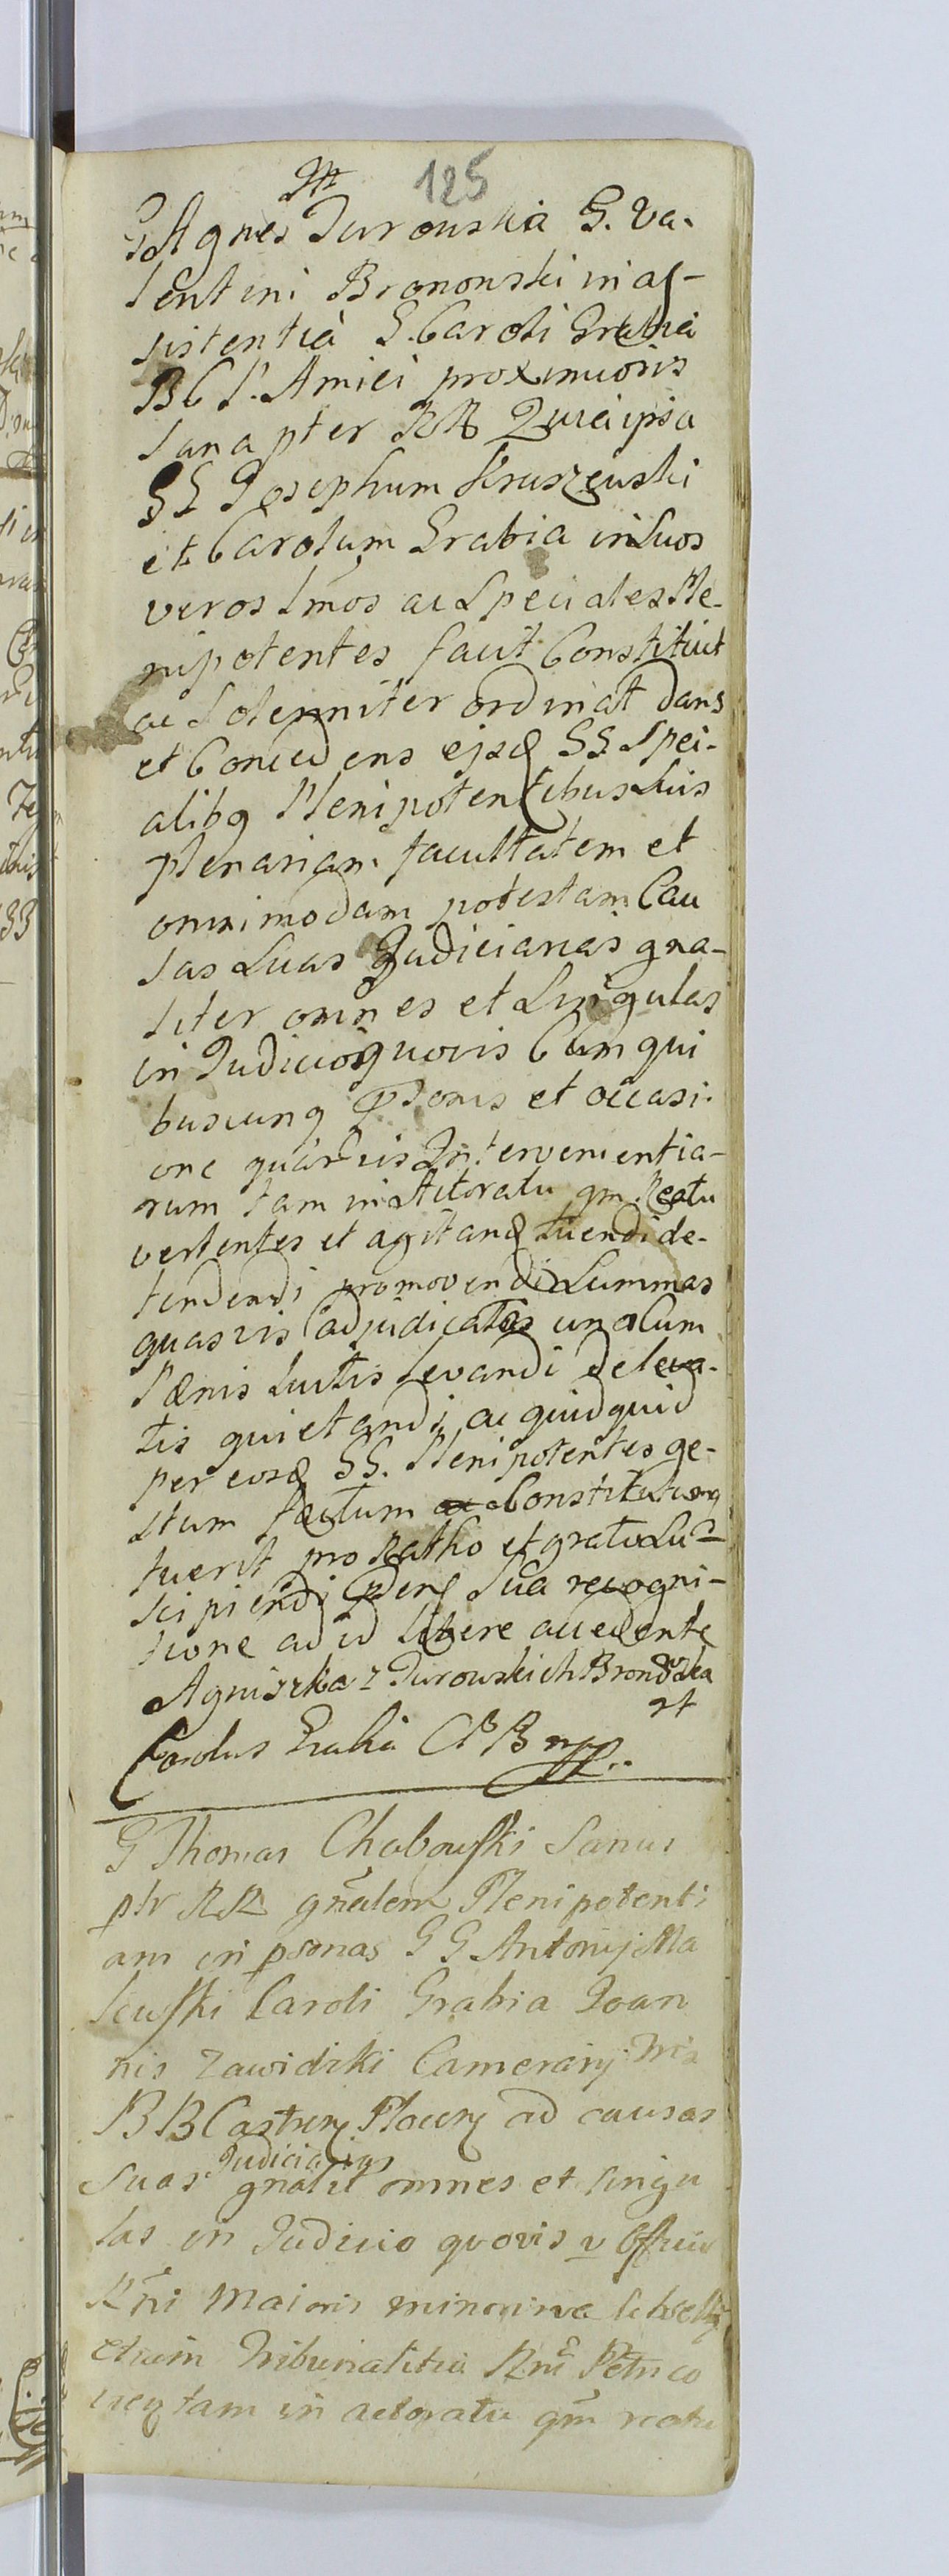 125
G Agnes Turouskia G. Va-
lentini Bronouski in as-
sistentia G. Caroli Grabia
B C S. Amici proximioris
Sana pter RR Quia ipsa
GG Josephum Kruszeuski
et Carolum Grabia in Suos
veros lmos ac Speciales Ple-
nipotentes facit Constituit
ac Solenniter ordinat dans
et Concedens ejsd GG Spei-
alibq Plenipotentibus Suis
plenariam facultatem et
omnimodam potestam Cau
sas Suas Judiciarias gna-
liter omnes et Singulas
in Judicio quovis Cum qui
buscunq Psonis et occasi-
one quarvis Intervenientia-
rum tam in Actoratu qm Reatu
vertentes et agitand tuendi de-
fendendi promovendi Summas
quasvis adjudicatas una Cum
Pænis luitis levandi de leva-
tis quietandi ac quidquid
per eosd GG. Plenipotentes ge-
stum factum Constitutumq
fuerit pro Ratho et grato Su-
scipiendi Sua recogni-
tione ad id libere accedente
Agniszka z Turowskich Bronoska
Carolus Grabia C B B mpp..
G Thomas Chabowski Sanus
ptr RR gnalem Plenipotenti
am in psonas G G Antonij Ma
lewski Caroli Grabia Joan
nis Zawidzki Camerarij
B B Castren Plocen ad causas
Judiciarias
Suas gnalit omnes et singu
las in Judicio quovis v Officio
Rni Maioris minorisve
etiam Tribunalitio Rni Petrico
vien tam in actoratu qm reatu